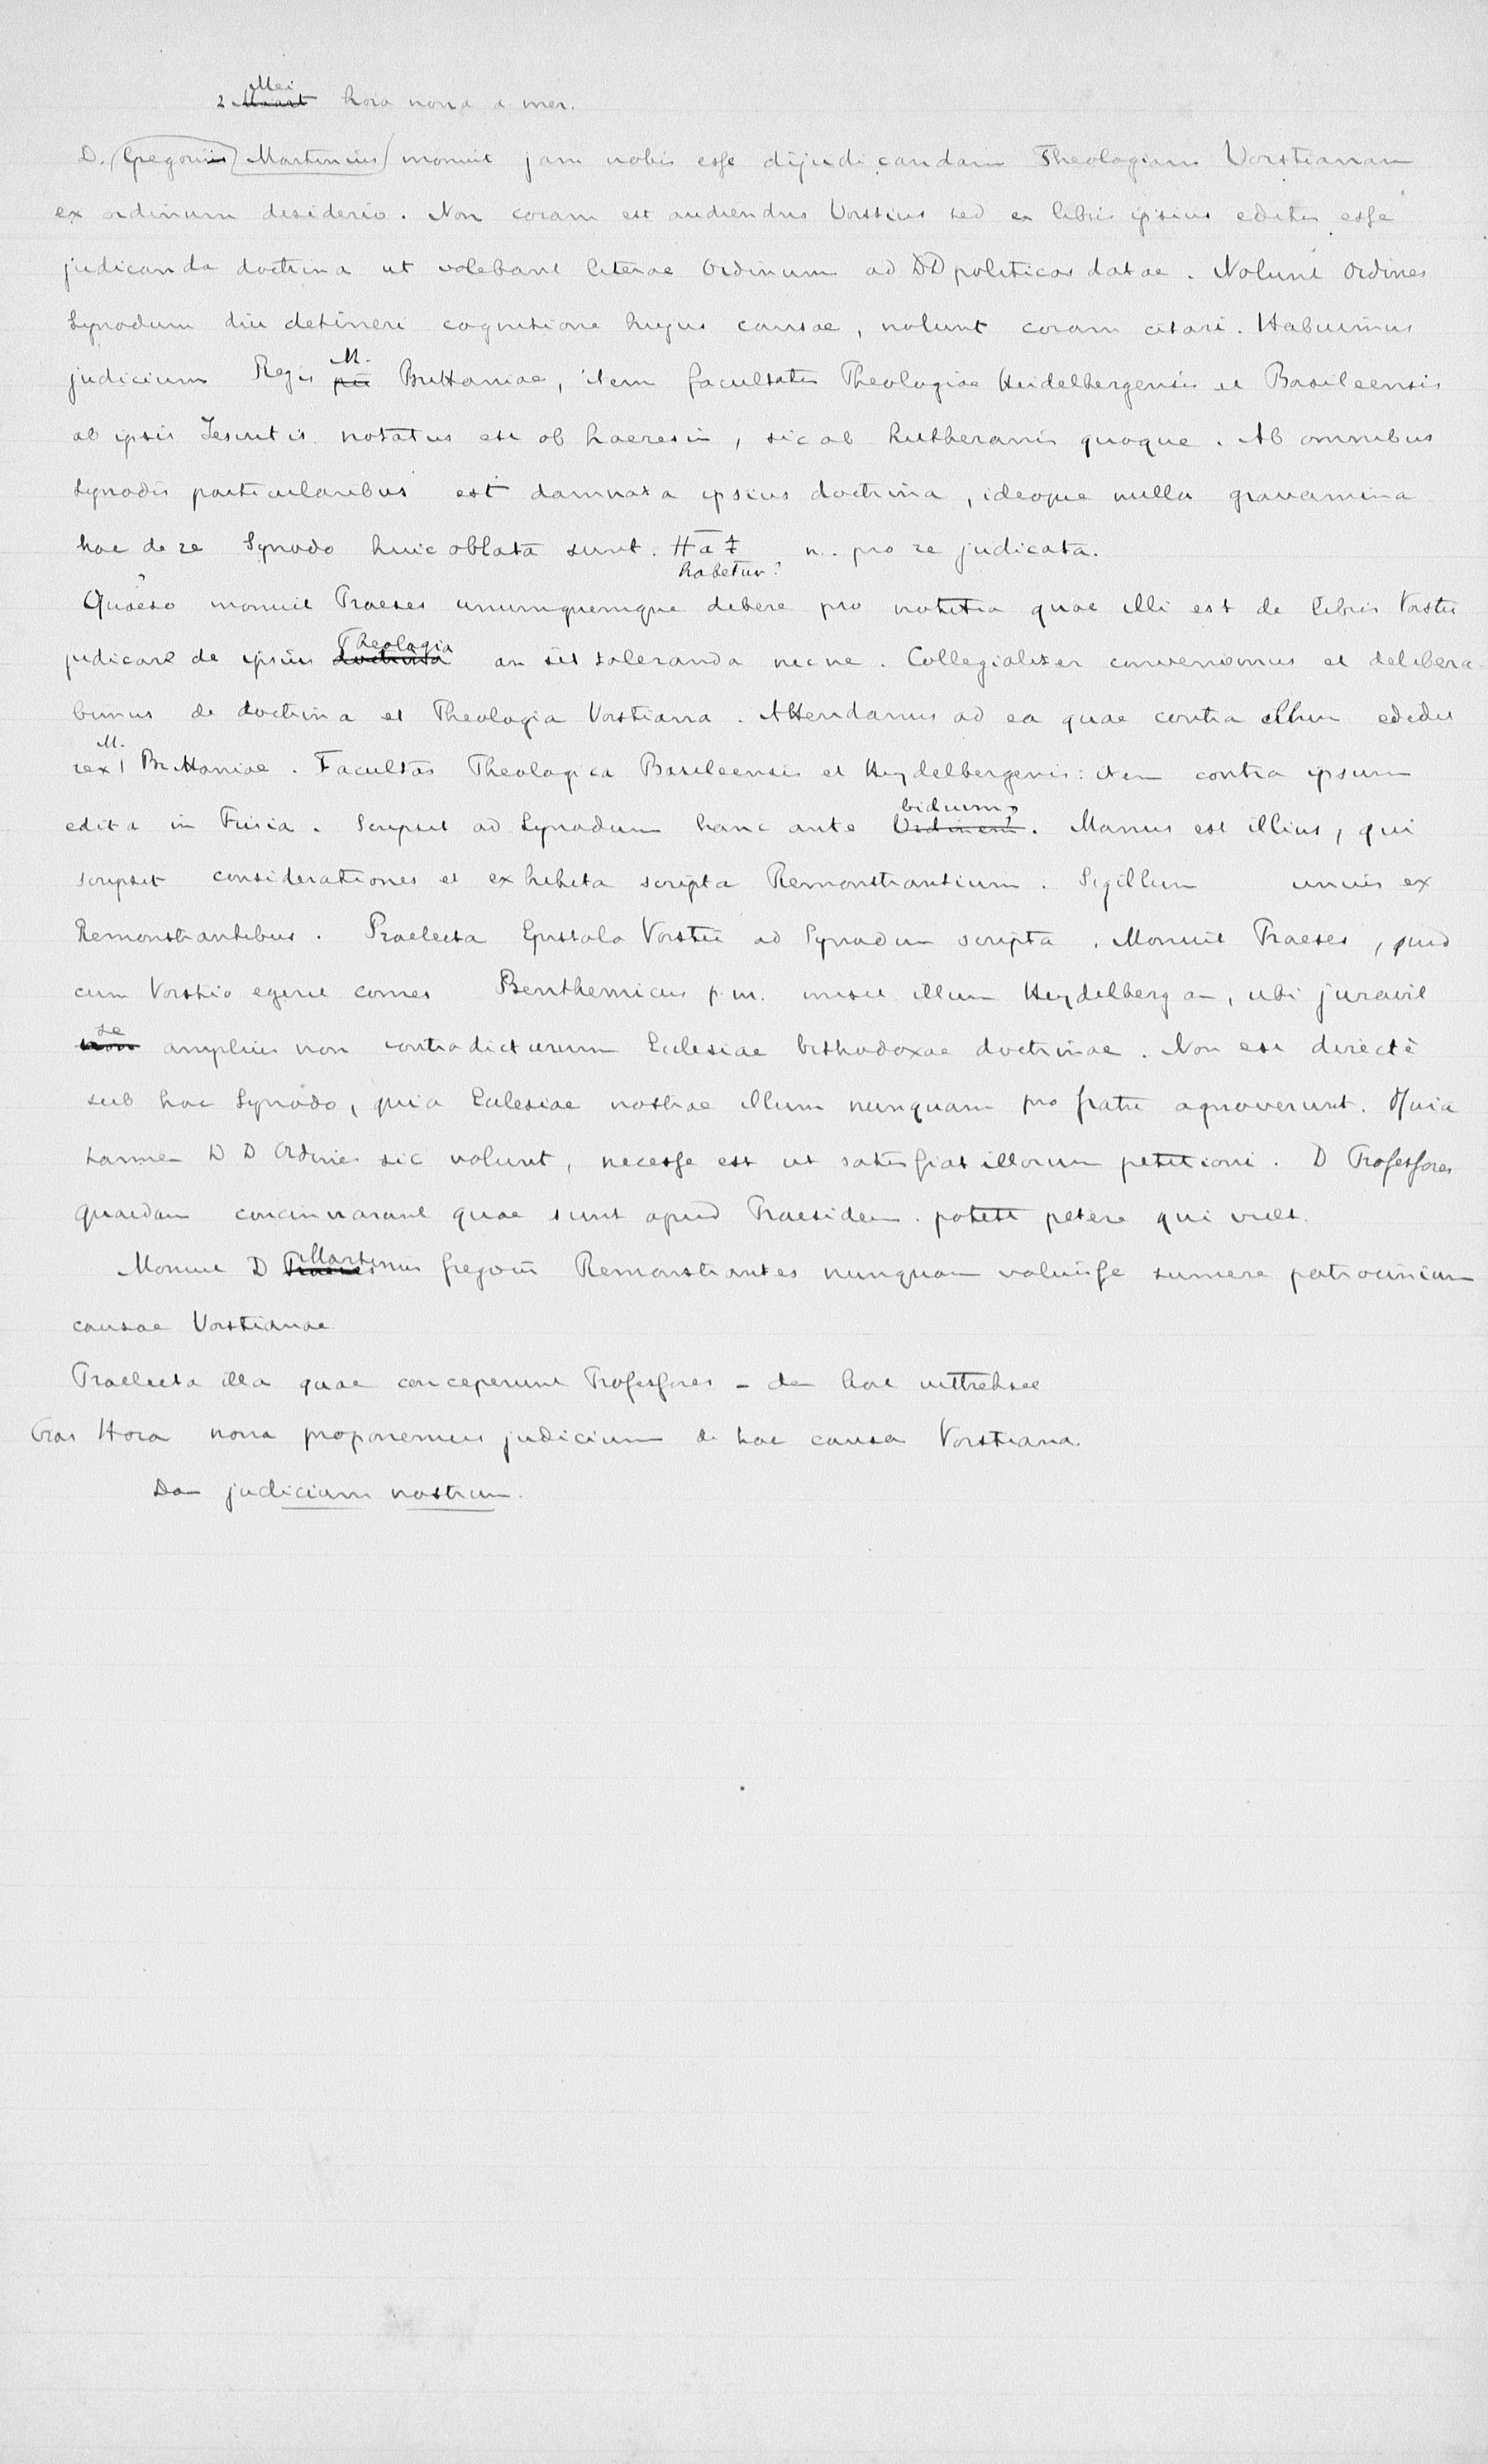 2 Maart Mei hora nona a. mer.
D. (Gregorius) Martinius) monuit jam nobis esse dijudicandam Theologiam Vorstianam
ex ordinum desiderio. Non coram est audiendus Vorstius sed ex libris ipsius editis esse
judicanda doctrina ut volebant literae Ordinum ad DD politicos datae. Nolunt Ordines
Synodum diu detineri cognitione hujus causae, nolunt coram citari. Habuimus
judicium Regis M. Brittaniae, item facultatis Theologiae Heidelbergensis et Basileensis
ab ipsis Jesuitis notatus est ob haeresin, sic ab Lutheranis quoque. Ab omnibus
Synodis particularibus est damnata ipsius doctrina, ideoque nulla gravamina
hac de re Synodo huic oblata sunt. Ha habetur? n.. pro re judicata.
Quaeso monuit Praeses unumquemque debere pro notitia quae illi est de libris Vorstii
judicare de ipsius doctrina Theologia an sit toleranda necne. Collegialiter conveniemus et delibera-
bimus de doctrina et Theologia Vorstiana. Attendamus ad ea quae contra illum edidit
rex M. Brittaniae. Facultas Theologica Basileensis et Heydelbergensis: item contra ipsum
edita in Frisia. Scripsit ad Synodum hanc ante biduum?. Manus est illius, qui
scripsit considerationes et exhibita scripta Remonstrantium. Sigillum unius ex
Remonstrantibus. Praelecta Epistola Vorstii ad Synodum scripta. Monuit Praeses, quid
cum Vorstio egerit comes Benthemicus p.m. misit illum Heydelbergam, ubi juravit
non se amplius non contradicturum Ecclesiae orthodoxae doctrinae. Non est directè
sub hac Synodo, quia Ecclesiae nostrae illum nunquam pro fratre agnoverunt. Quia
tamen D D Ordines sic volunt, necesse est ut satisfiat illorum petitioni. D Professores
quaedam concinnarunt quae sunt apud Praesidem. potest petere qui vult.
Monuit D Praeses Martinus Gregorii Remonstrantes nunquam voluisse sumere patrocinium
causae Vorstianae
Praelecta illa quae conceperunt Professores - de hac
Cras Hora nona proponemus judicium de hac causa Vorstiana.
Da judicium nostrum.